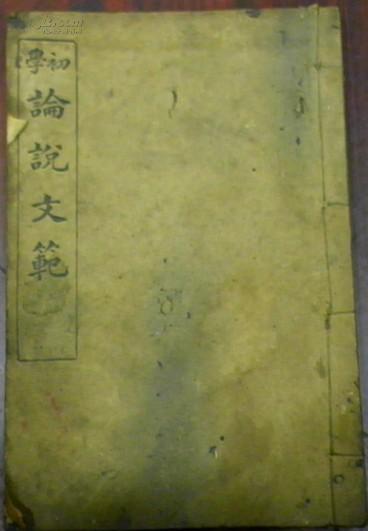 初學
論說文範